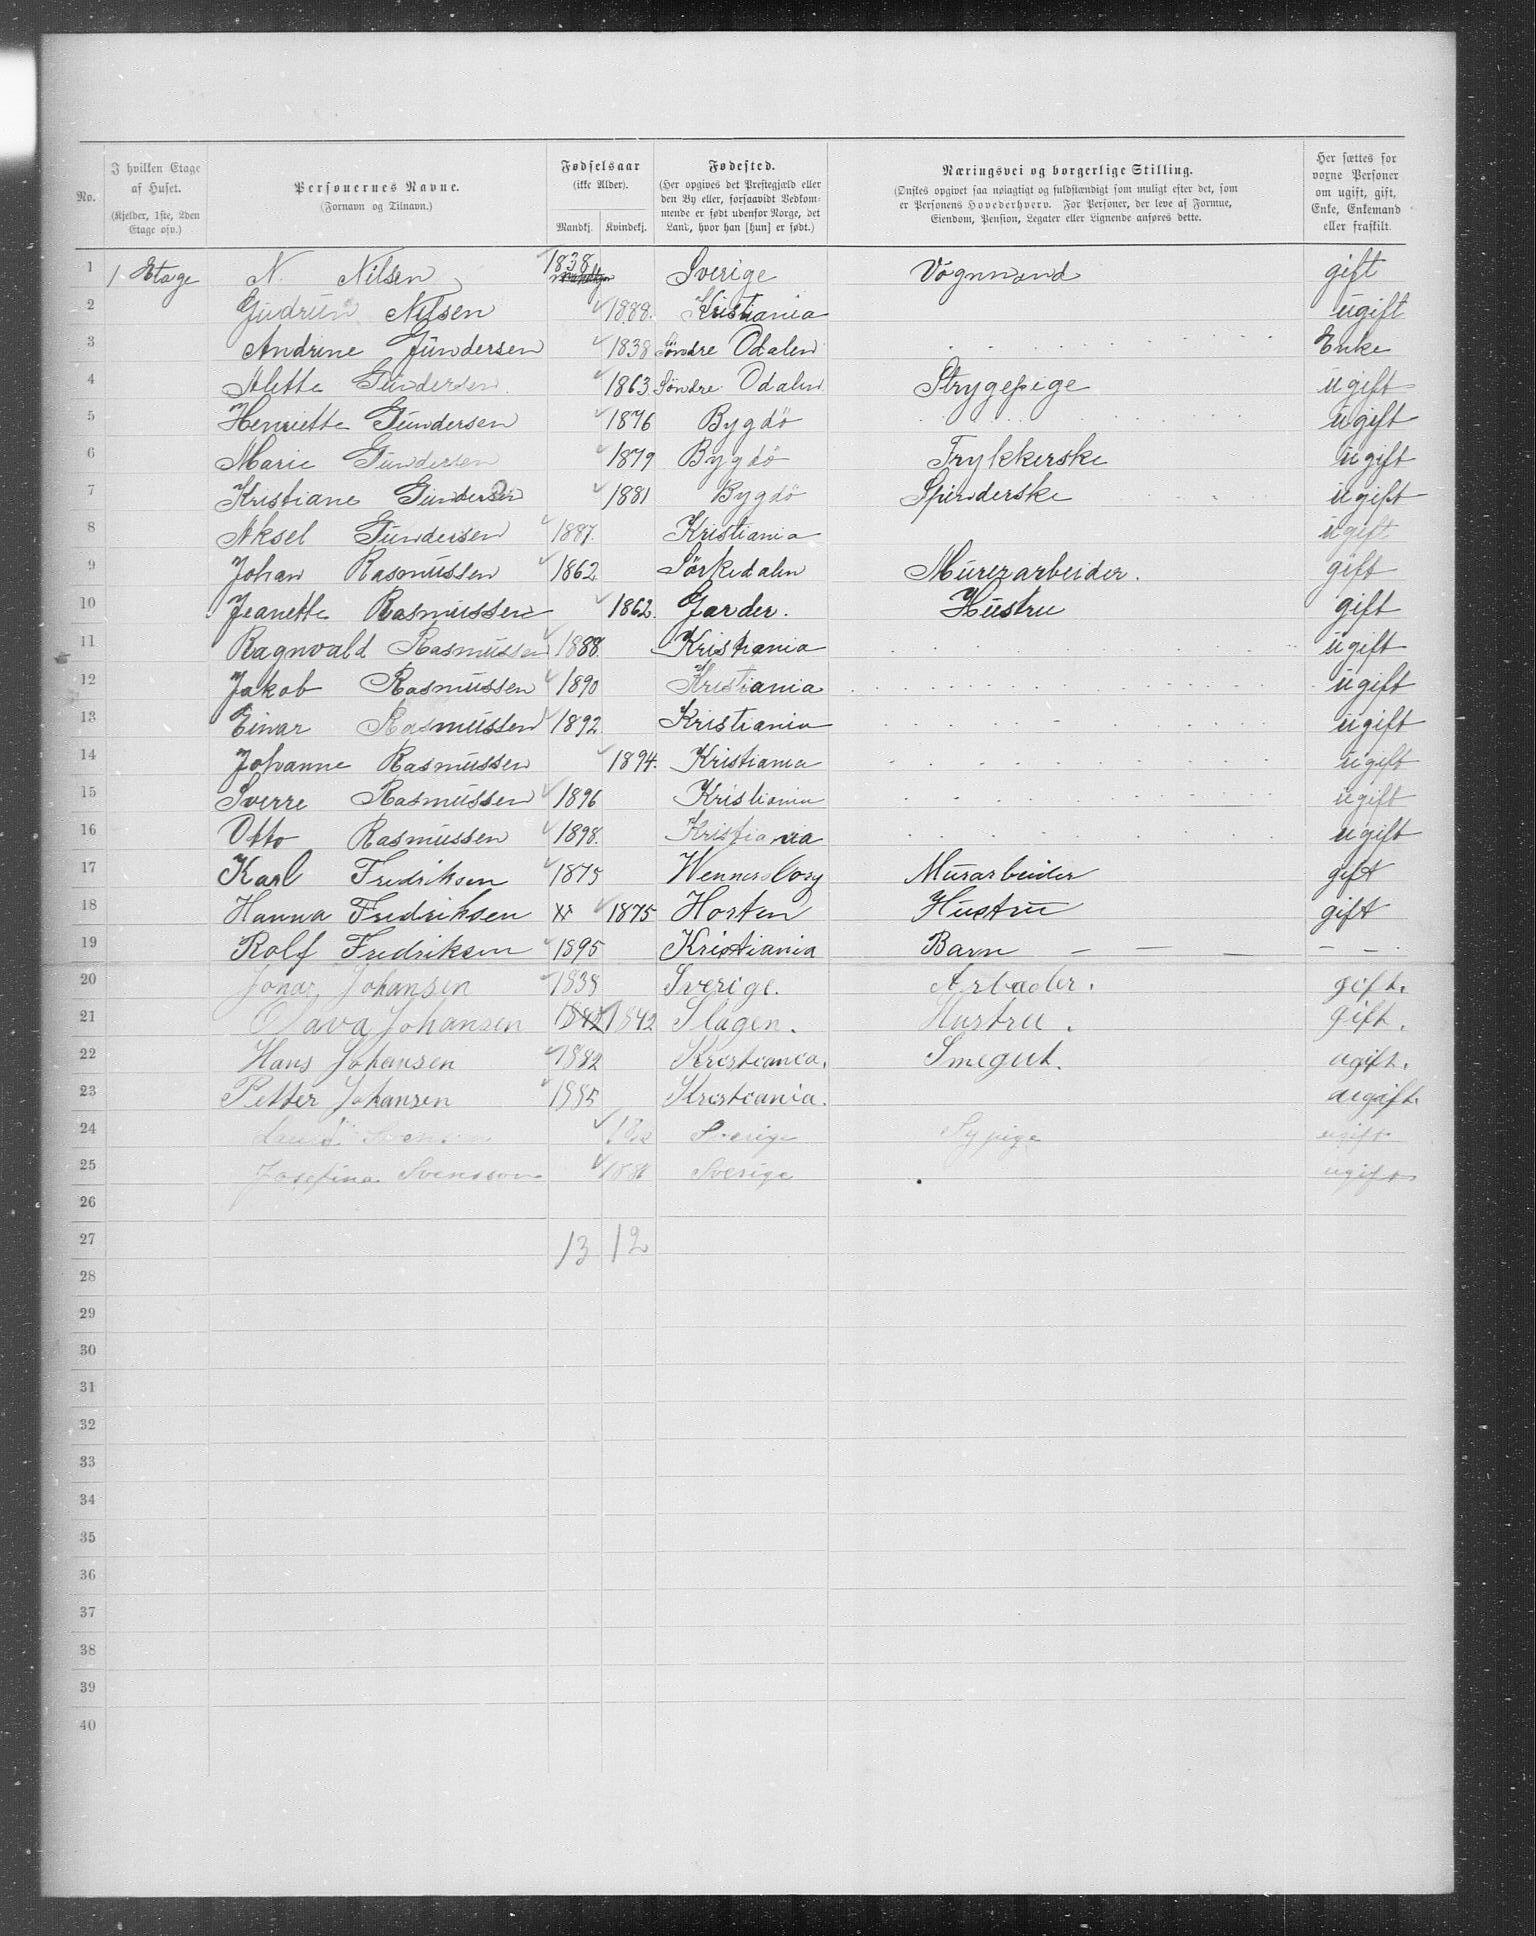 No. I hvilken Etage af Huset. (Kjelder, 1ste, 2den Etage osv.) Personernes Navne. (Fornavn og Tilnavn.) Fødselsaar (ikke Alder). Mandkj. Kvindekj. Fødested. (Her opgives det Prestegjæld eller den By eller, forsaavidt Vedkommende er født udenfor Norge, det Land, hvor han [hun] er født.) Næringsvei og borgerlige Stilling. (Ønskes opgivet saa nøiagtigt og fuldstændigt som muligt efter det, som er Personens Hovederhverv. For Personer, der leve af Formue, Eiendom, Pension, Legater eller Lignende anføres dette. Her sættes for voxne Personer om ugift, gift, Enke, Enkemand eller fraskilt.
1 1 Etage N. Nilsen 1838 Sverige Vognmand gift
2 Gudrun Nilsen 1888. Kristiania ugift
3 Andrine Gundersen 1838 Søndre Odalen Enke
4 Alette Gundersen 1863 Søndre Odalen Strygepige ugift
5 Henriette Gundersen 1876 Bygdö ugift
6 Marie Gundersen 1879 Bygdö Trykkerske ugift
7 Kristiane Gundersen 1881 Bygdö Spinderske ugift
8 Aksel Gundersen 1887. Kristiania ugift
9 Johan Rasmussen 1862 Sörkedalen Murerarbeider. gift
10 Jeanette Rasmussen 1862. Garder. Hustru gift
11 Ragnvald Rasmussen 1888. Kristiania ugift
12 Jakob Rasmussen 1890 Kristiania ugift
13 Einar Rasmussen 1892 Kristiania ugift
14 Johanne Rasmussen 1894. Kristiania ugift
15 Sverre Rasmussen 1896 Kristiania ugift
16 Otto Rasmussen 1898. Kristiania ugift
17 Karl Fredriksen 1875 Wennersborg Murarbeider gift
18 Hanna Fredriksen 1875 Horten Hustru gift
19 Rolf Fredriksen 1895 Kristiania Barn — — — —
20 Jonas Johansen 1838 Sverige. Arbader. gift.
21 Olava Johansen 1842 1842 Slagen. Hustru. gift.
22 Hans Johansen 1882 Kristiania. Smegut. ugift.
23 Petter Johansen 1885 Kristiania. augift.
24 Sverige Sypige ugift
25 Josefina Svensson 1886 Sverige ugift
26
27 13 12
28
29
30
31
32
33
34
35
36
37
38
39
40